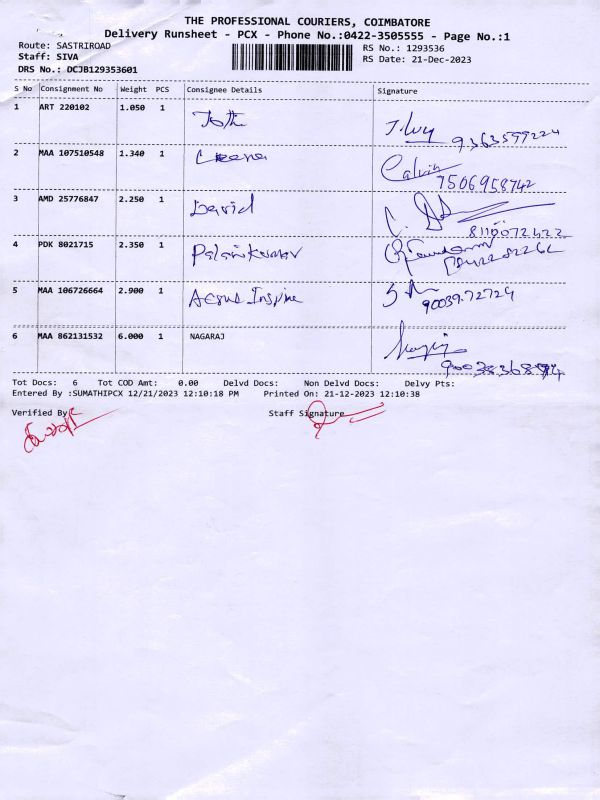 THE PROFESSIONAL COURIERS, COIMBATORE
Delivery Runsheet - PCX - Phone No.:0422-3505555 - Page No.:1
Route: SASTRIROAD
Staff: SIVA
DRS No.: DCJB129353601
RS No.: 1293536
RS Date: 21-Dec-2023
S No Consignment No Weight PCS Consignee Details Signature
1 ART 220102 1.050 1
9363599224
2 MAA 107510548 1.340 1
Calvin
7506958742
3 AMD 25776847 2.250 1 David
8110072422
4 PDK 8021715 2.350 1 Palanikumar
5 MAA 106726664 2.900 1
90039-72724
6 MAA 862131532 6.000 1 NAGARAJ
Tot Docs: 6 Tot COD Amt: 0.00 Delvd Docs: Non Delvd Docs: Delvy Pts:
Entered By :SUMATHIPCX 12/21/2023 12:10:18 PM Printed On: 21-12-2023 12:10:38
Verified By Staff Signature